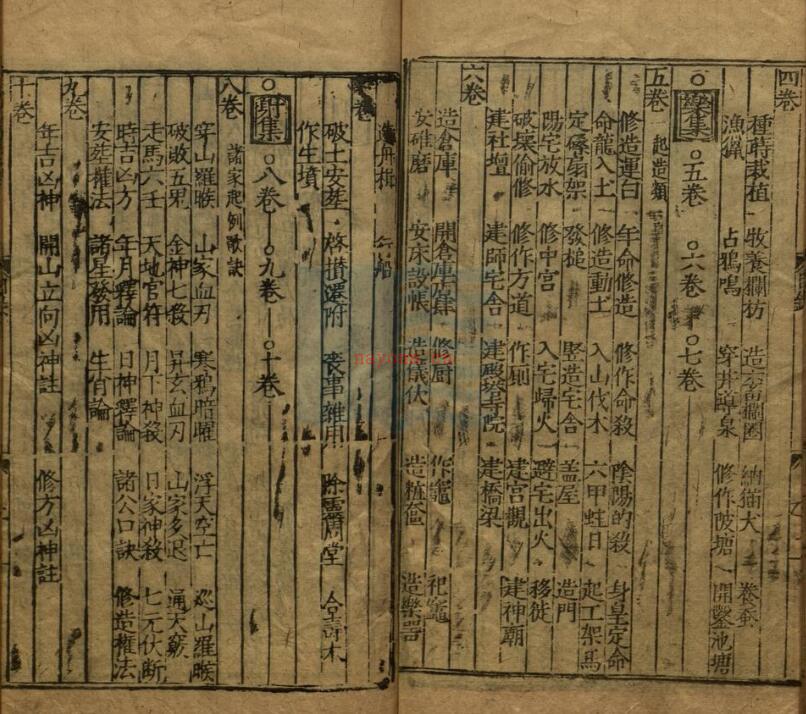 四卷
種蒔栽植 牧養欄枋 造畜欄圈 納猫犬 養蚕
漁獵 占鴉鳴 穿井導泉 修作陂塘 開鑿池塘
集 ○五卷 ○六卷 ○七卷
五卷 起造類
修造運白 年命修造 修作命殺 陰陽的殺 身皇定命
命龍入土 修造動土 入山伐木 六甲蛀日 起工架馬
定磉扇架 發槌 竪造宅舍 盖屋 造門
陽宅放水 修中宮 入宅歸火 避宅出火 移徙
破壞偷修 修作方道 作厕 建宮觀 建神廟
建社壇 建師宅舍 建寺院 建橋梁
六卷
造倉庫 開倉庫 修厨 作竈 祀竈
安碓磨 安床設帳 造儀伏 造粧奩 造樂器
卷
破土安葬 啓攢還附 喪事雜用 除靈 堂 合壽木
作生墳
○ 集 ○八卷 ○九卷 ○十卷
八卷 諸家起例歌訣
穿山羅睺 山家血刃 寒鴉暗曜 浮天空亡 巡山羅睺
破敗五鬼 金神七殺 昇玄血刃 山家多退 通天竅
走馬六壬 天地官符 月下神殺 日家神殺 七元伏断
時吉凶方 年月釋論 日神釋論 諸公口訣 修造權法
安葬權法 諸星發用 生百論
九卷
年吉凶神 開山立向凶神註 修方凶神註
十卷
nayona.cn